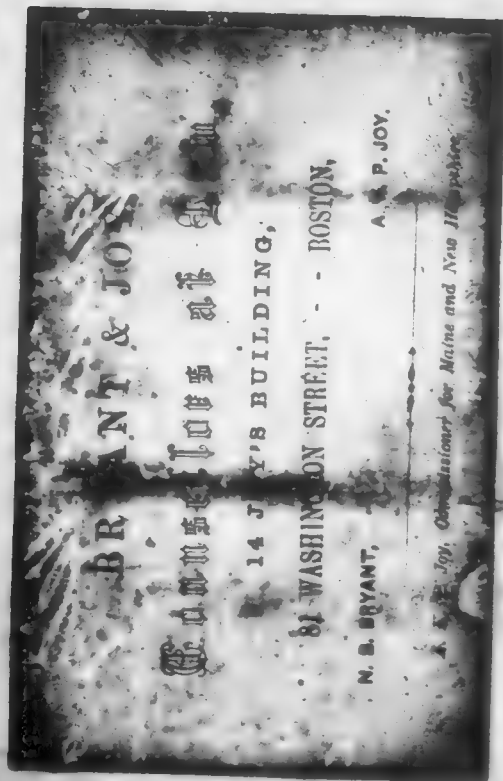 BRYANT & JOY
Counsellors at Law
14 JOY'S BUILDING,
81 WASHINGTON STREET, - - BOSTON,
N. B. BRYANT, A. P. JOY.
Joy, Commissioner for Maine and New Hampshire